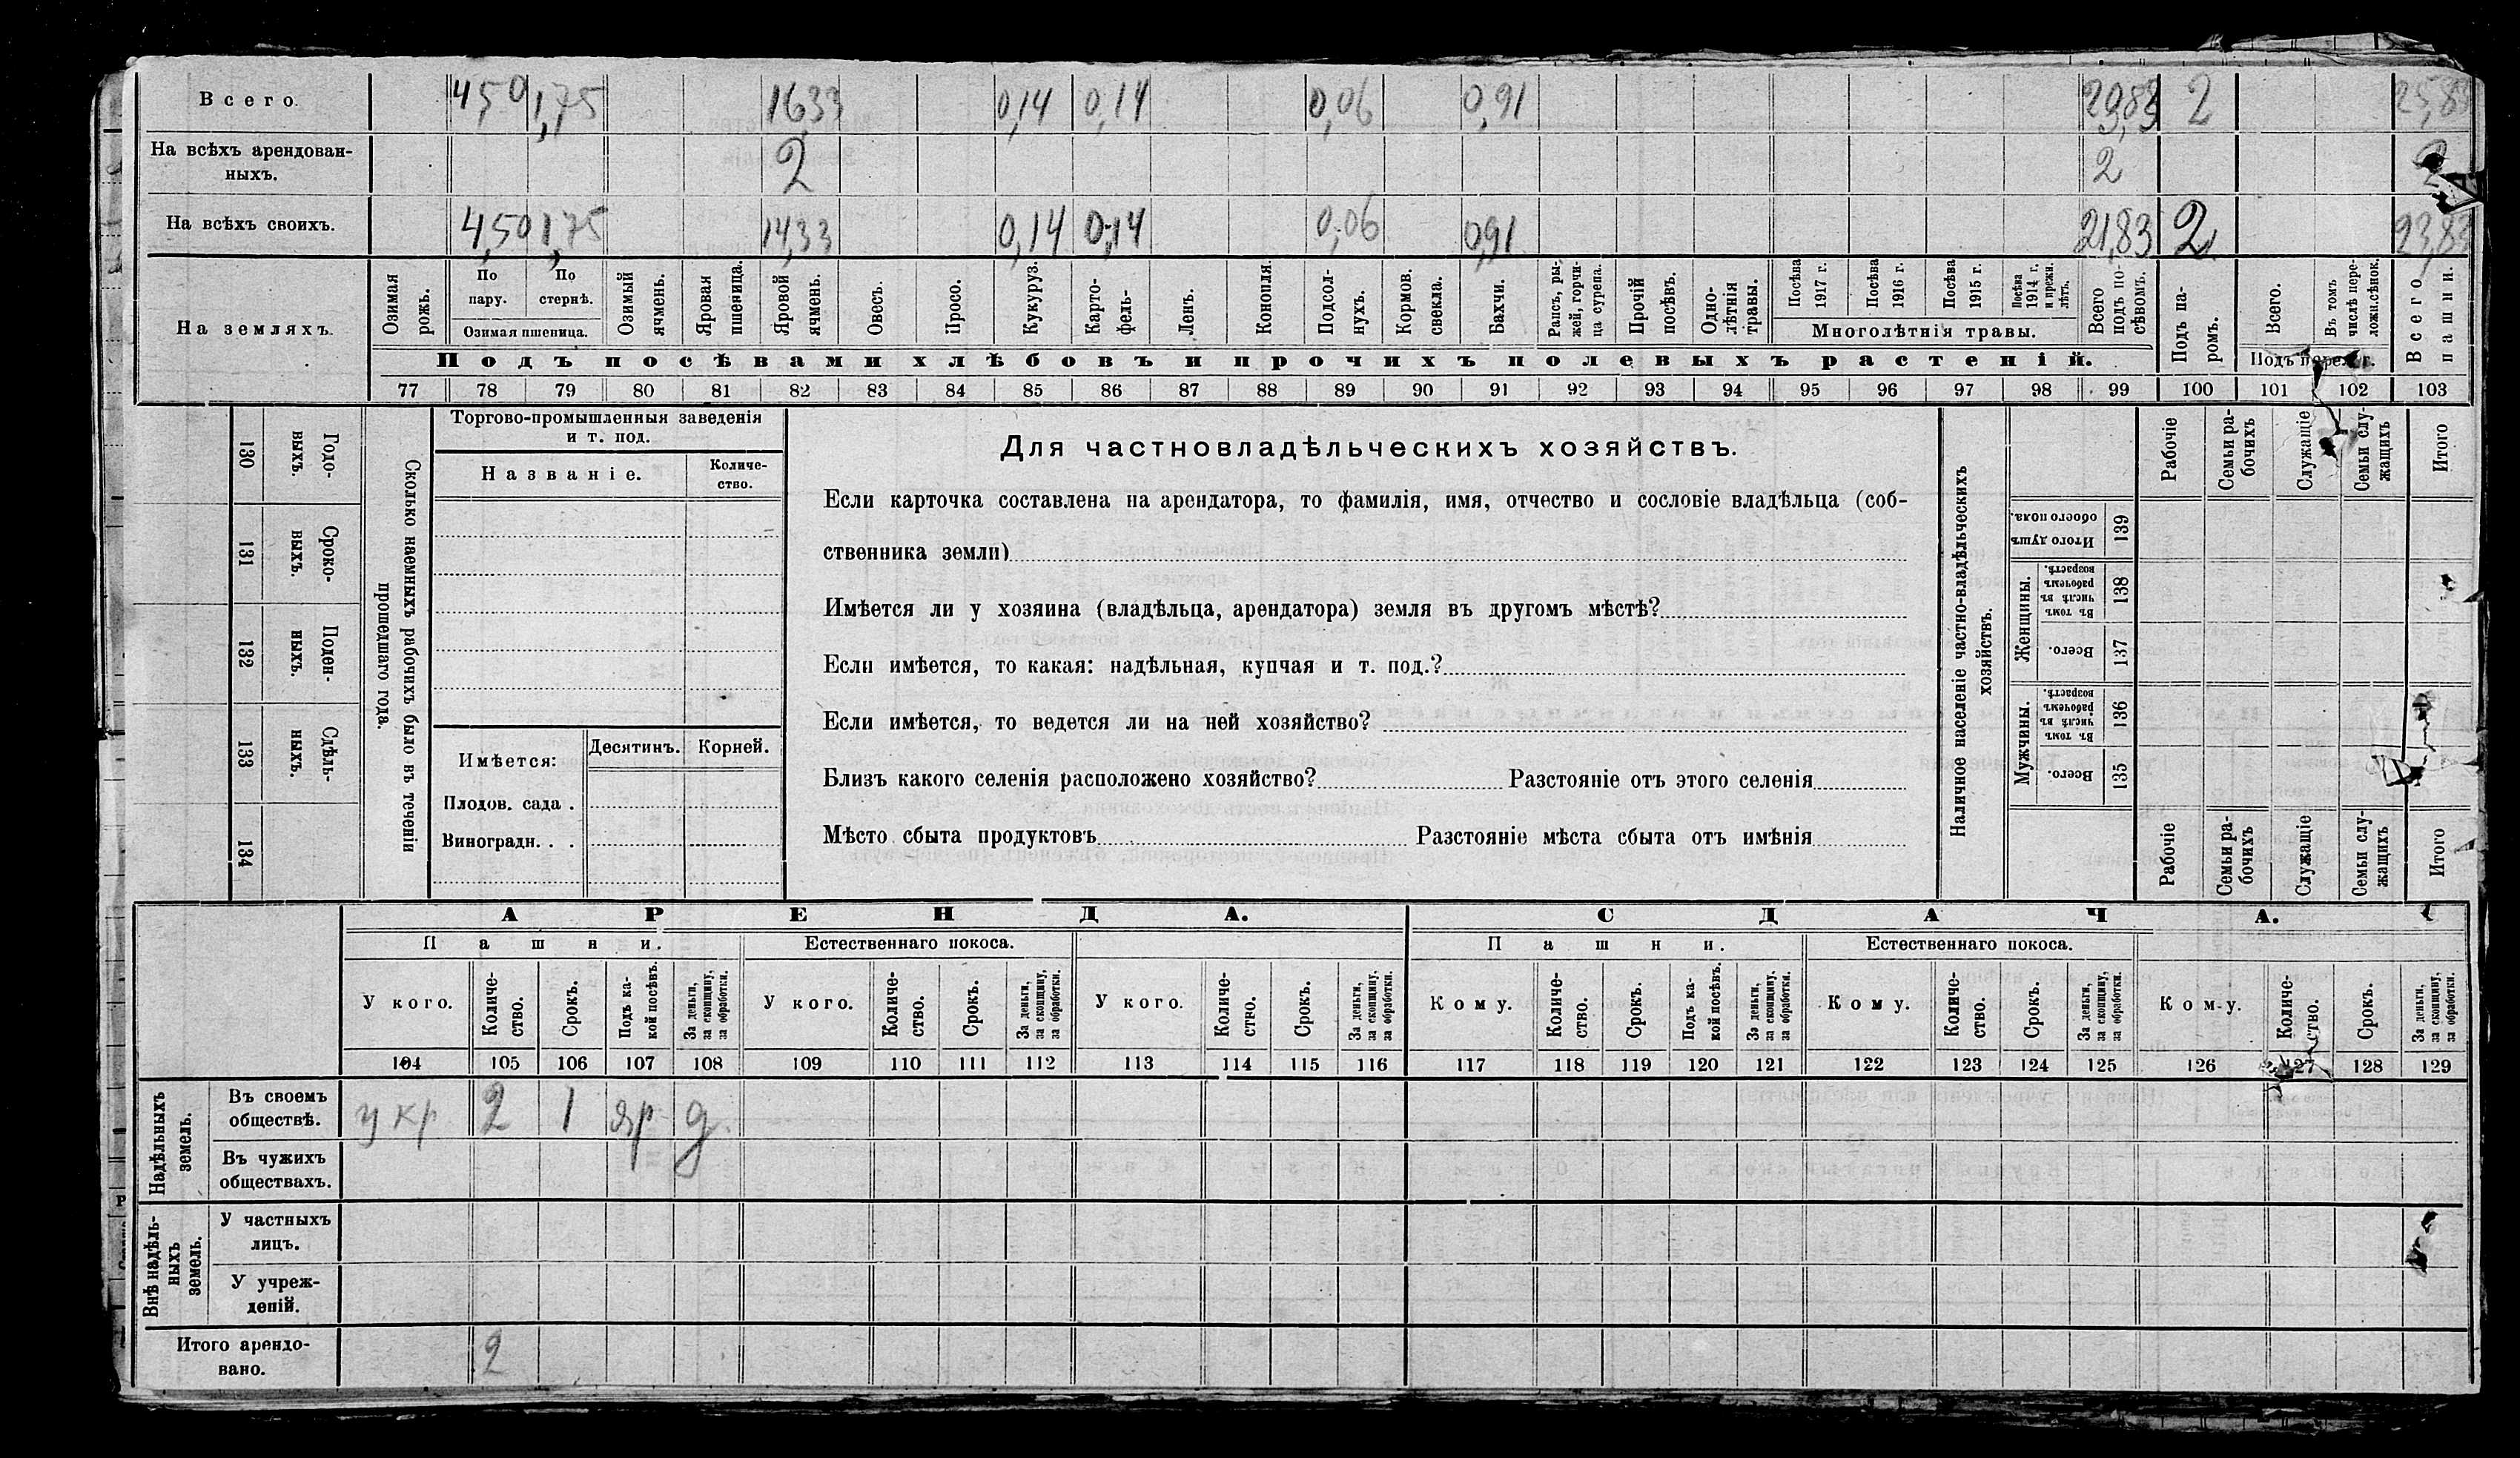 Всего. 4,50 1,75 16,33 0,14 0,14 0,06 0,91 23,83 2 25,83
На всѣхъ арендован-
ныхъ. 2 2 2
На всѣхъ своихъ. 4,50 1,75 14,33 0,14 0,14 0,06 0,91 21,83 2 23,83
На земляхъ.
Озимая рожь.
По пару.
По стернѣ.
Озимая пшеница.
Озимый ячмень.
Яровая пшеница.
Яровой ячмень.
Овесъ.
Просо.
Кукуруз.
Карто-
фель-
Ленъ.
Конопля.
Подсол-
нухъ.
Кормов. свекла.
Бахчи.
Рапсъ, ры-
жей, горчи-
ца сурепа.
Прочій посѣвъ.
Одно-
лѣтнія травы.
Посѣва 1917 г.
Посѣва 1916 г.
Посѣва 1915 г.
посѣва 1914 г. и прежн. лѣтъ.
Многолѣтнія травы.
Всего подъ по-
сѣвомъ.
Подъ па-
ромъ.
Всего.
Въ томъ числѣ пере-
ложн.сѣнок.
Всего пашни.
Подъ посѣвами хлѣбовъ и прочихъ полевыхъ растеній.
77 78 79 80 81 82 83 84 85 86 87 88 89 90 91 92 93 94 95 96 97 98 99 100 101 102 103
130 Годо-
выхъ.
131 Сроко-
выхъ.
132 Поден-
ныхъ.
133 Сдѣль-
ныхъ.
134
Сколько наемныхъ рабочихъ было въ теченіи
прошедшаго года.
Торгово-промышленныя заведенія
и т. под.
Названіе.
Количе-
ство.
Имѣется: Десятинъ. Корней.
Плодов. сада .
Виноградн. . .
Для частновладѣльческихъ хозяйствъ.
Если карточка составлена на арендатора, то фамилія, имя, отчество и сословіе владѣльца (соб-
ственника земли)
Имѣется ли у хозяина (владѣльца, арендатора) земля въ другомъ мѣстѣ?
Если имѣется, то какая: надѣльная, купчая и т. под.?
Если имѣется, то ведется ли на ней хозяйство?
Близъ какого селенія расположено хозяйство? Разстояніе отъ этого селенія
Мѣсто сбыта продуктовъ Разстояніе мѣста сбыта отъ имѣнія
Наличное населеніе частно-владѣльческихъ
хозяйствъ.
Рабочіе
Семьи ра-
бочихъ
Служащіе
Семьи слу-
жащихъ
Итого
Итого душъ обоего пола. 139
Женщины.
Въ томъ числѣ въ рабочемъ возрастѣ. 138
Всего. 137
Мужчины.
Въ томъ числѣ въ рабочемъ возрастѣ. 136
Всего. 135
Рабочіе
Семьи ра-
бочихъ
Служащіе
Семьи слу-
жащихъ
Итого
АРЕНДА. СДАЧА.
Пашни. Естественнаго покоса. Пашни. Естественнаго покоса.
У кого.
Количе-
ство.
Срокъ.
Подъ ка-
кой посѣвъ.
За деньги,
за скопщину,
за обработки.
У кого.
Количе-
ство.
Срокъ.
За деньги,
за скопщину,
за обработки.
У кого.
Количе-
ство.
Срокъ.
За деньги,
за скопщину,
за обработки.
Кому.
Количе-
ство.
Срокъ.
Подъ ка-
кой посѣвъ.
За деньги,
за скопщину,
за обработки.
Кому.
Количе-
ство.
Срокъ.
За деньги,
за скопщину,
за обработки.
Кому.
Количе-
ство.
Срокъ.
За деньги,
за скопщину,
за обработки.
104 105 106 107 108 109 110 111 112 113 114 115 116 117 118 119 120 121 122 123 124 125 126 127 128 129
Надѣльныхъ
земель.
Въ своемъ
обществѣ. у кр 2 1 яр д.
Въ чужихъ
обществахъ.
Внѣ надѣль-
ныхъ
земель.
У частныхъ
лицъ.
У учреж-
деній.
Итого арендо-
вано. 2